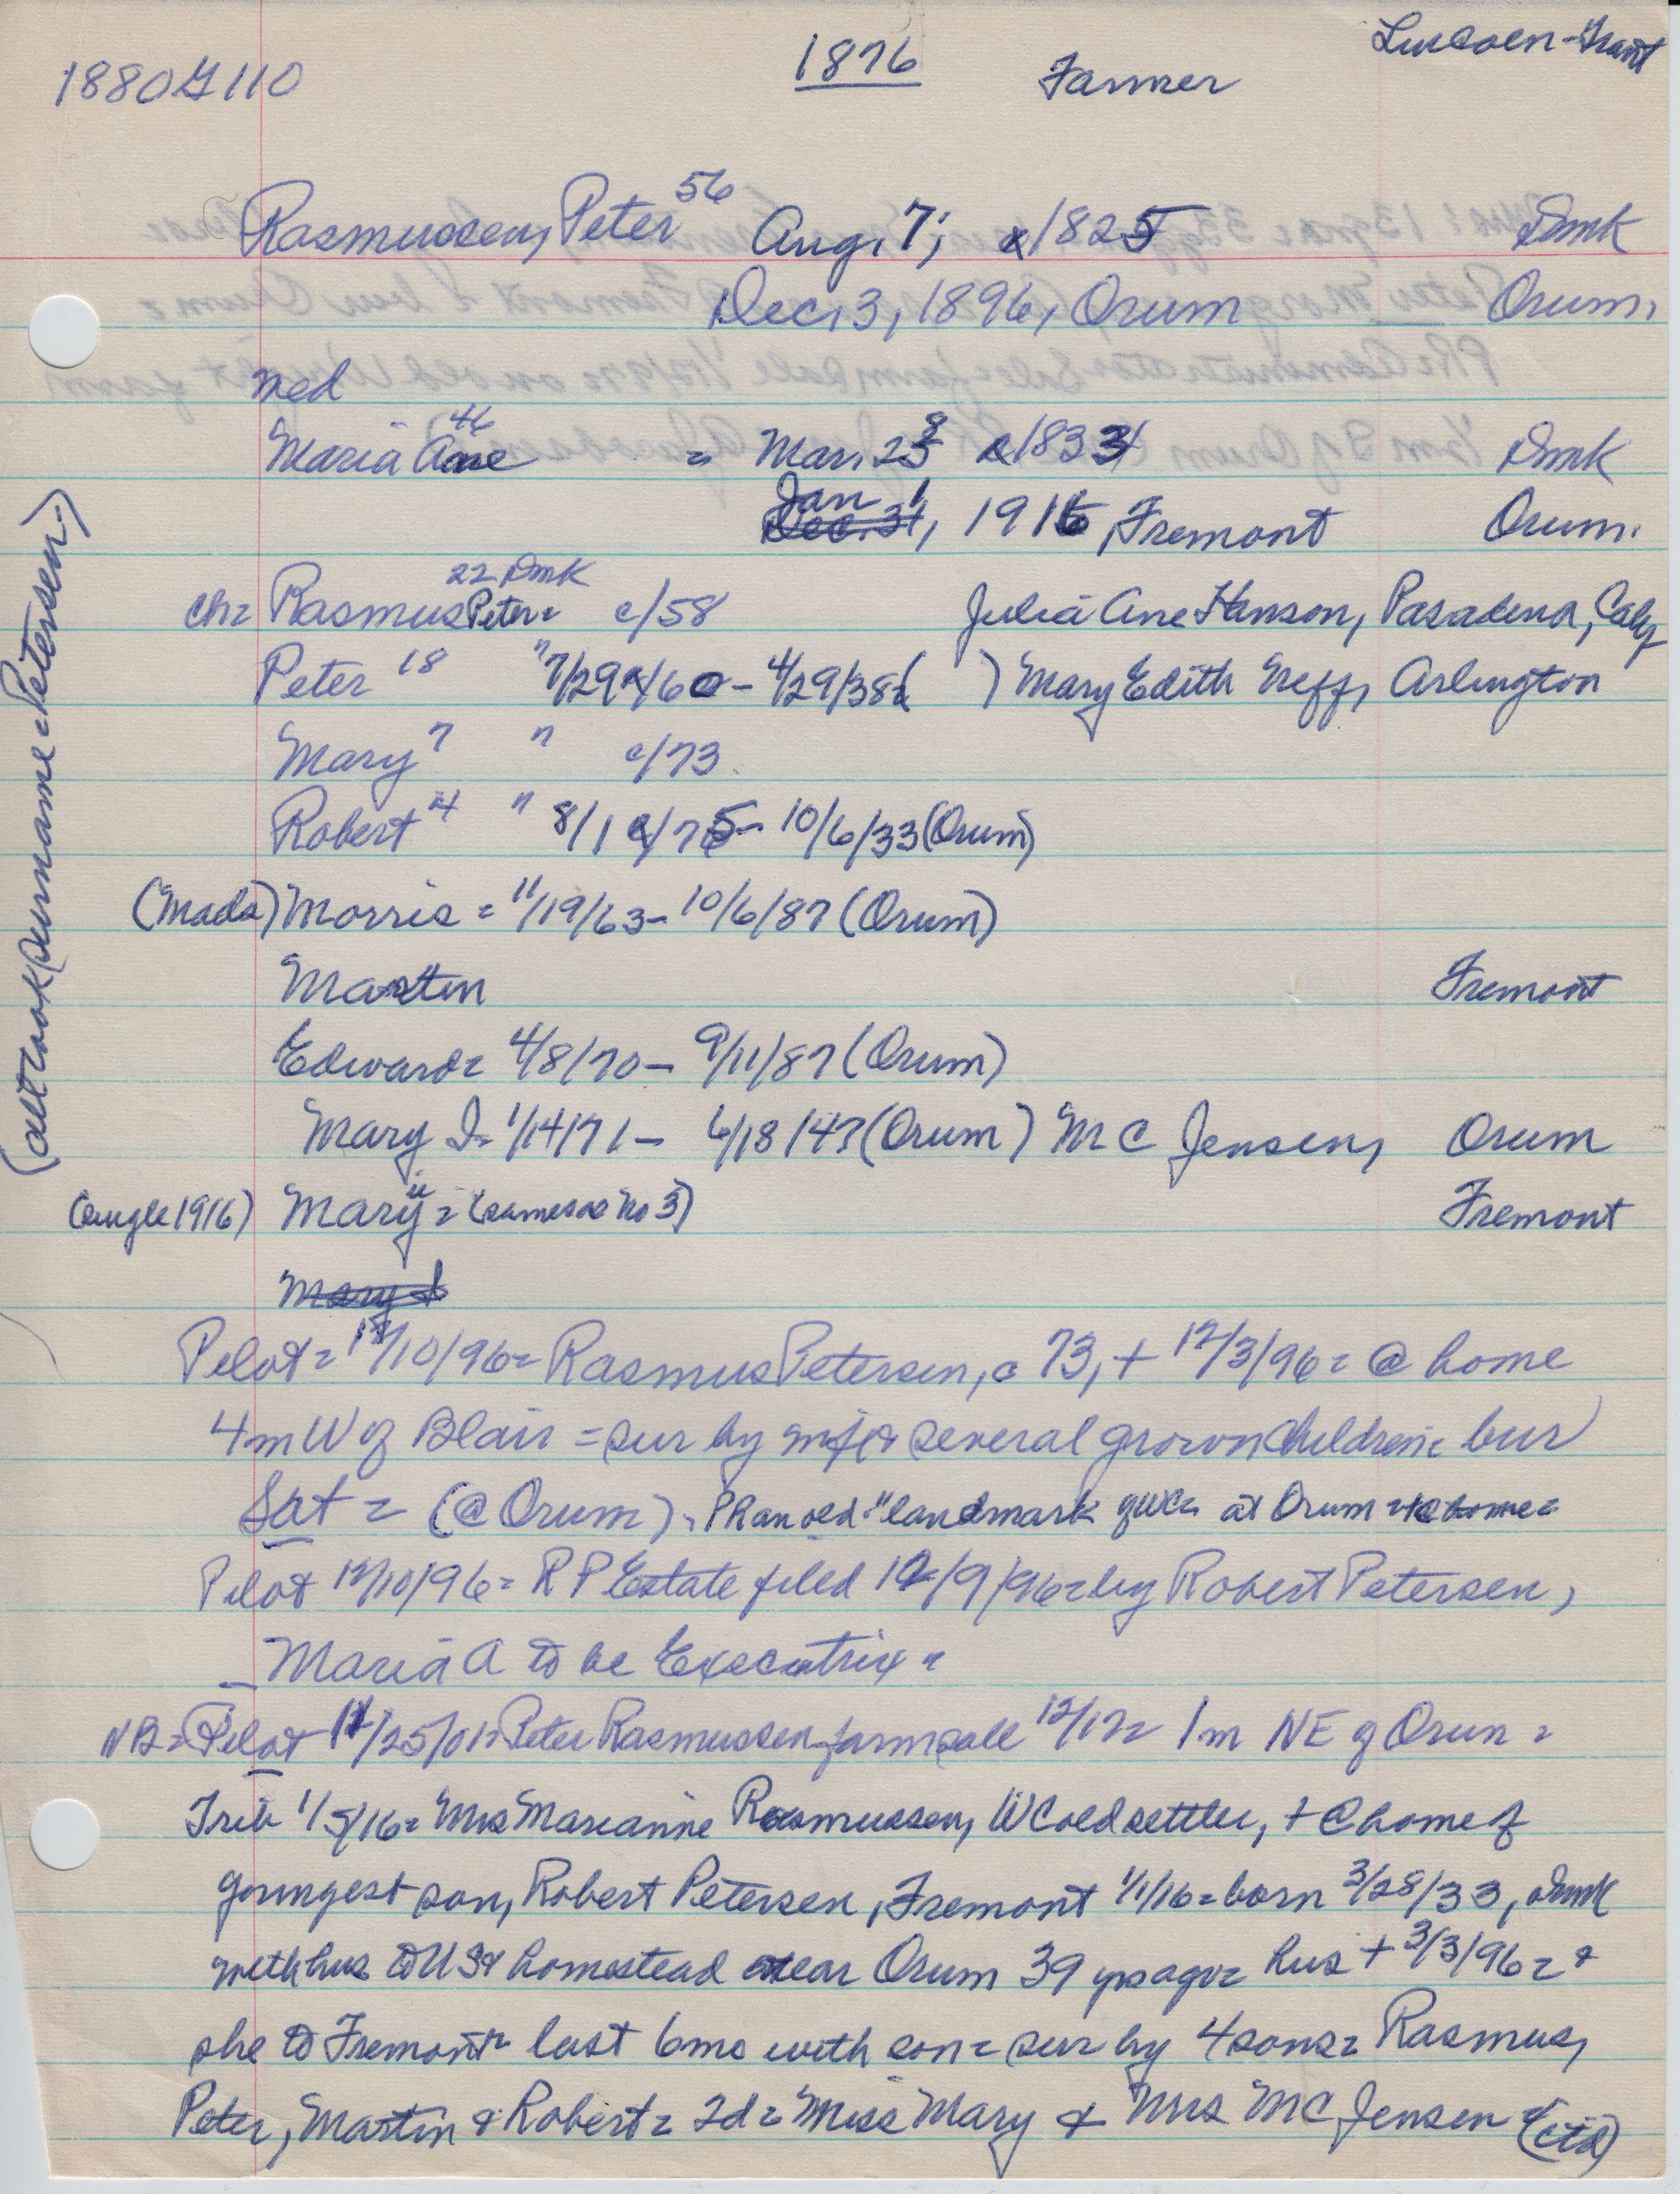 1880 G 110 1876 Farmer Lincoln-Grant
Rasmussen, Peter 56 Aug. 7, 1825 Dmk
Dec, 3, 1896, Orum Orum,
med
Maria Ane 46 = Mar. 28 1833 Dmk
Jan 1, 1916, Fremont Orum.
ch= Rasmus Peter= 22 Dmk c/58 Julia Ane Hanson, Pasadena, Calf
Peter 18 " 7/29/60 - 4/29/38= ( ) Mary Edith Neff, Arlington
Mary 7 " c/73
Robert 4 " 8/1/75 - 10/6/33 (Orum)
(Mads) Morris = 11/19/63 - 10/6/87 (Orum)
Martin Fremont
Edward= 4/8/70 - 9/11/87 (Orum)
Mary I= 1/14/71 - 6/18/47 (Orum) M C Jensen, Orum
(single 1916) Mary II = (same as No 3) Fremont
Mary I
(all took surname = Petersen)
Pilot = 12/10/96 = Rasmus Petersen, c 73, + 12/3/96 = @ home
4 m W of Blair = sur by wife & several grown children = bur
Sat = (@ Orum). PR an old "landmark of WC = at Orum = @ home =
Pilot 12/10/96 = R P Estate filed 12/9/96 = by Robert Petersen,
Maria A to be Executrix =
NB = Pilot 11/25/01 = Peter Rasmussen farm sale 12/12 = 1 m NE of Orum =
Trib 1/5/16 = Mrs Marianne Rasmussen, WC old settler, + @ home of
youngest son, Robert Petersen, Fremont 1/1/16 = born 3/28/33, Dmk
with hus to US & homestead near Orum 39 yrs ago = hus + 3/3/96 = &
she to Fremont = last 6 mo with son = sur by 4 sons = Rasmus,
Peter, Martin & Robert = 2d = Miss Mary & Mrs M C Jensen = (ctd)